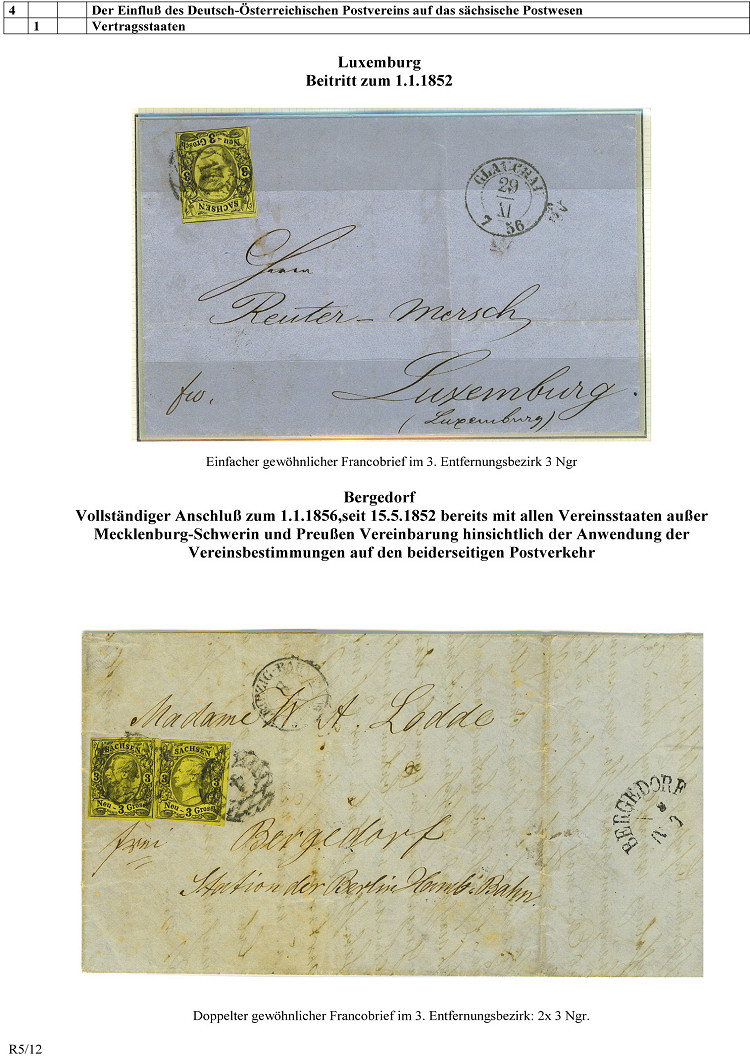 4 Der Einfluß des Deutsch-Österreichischen Postvereins auf das sächsische Postwesen
1 Vertragsstaaten
Luxemburg
Beitritt zum 1.1.1852
Neu - 3 Grosch
3 3
SACHSEN
GLAUCHAU
29
XI
7 56
Herrn
Reuter-Mersch
Luxemburg.
(Luxemburg)
Einfacher gewöhnlicher Francobrief im 3. Entfernungsbezirk 3 Ngr
Bergedorf
Vollständiger Anschluß zum 1.1.1856,seit 15.5.1852 bereits mit allen Vereinsstaaten außer
Mecklenburg-Schwerin und Preußen Vereinbarung hinsichtlich der Anwendung der
Vereinsbestimmungen auf den beiderseitigen Postverkehr
Madame W. A. Lodde
SACHSEN SACHSEN
3 3 3 3
Neu - 3 Grosch Neu - 3 Grosch
BERGEDORF
frei
Bergedorf
Station der Berlin Hamb. Bahn.
Doppelter gewöhnlicher Francobrief im 3. Entfernungsbezirk: 2x 3 Ngr.
R5/12